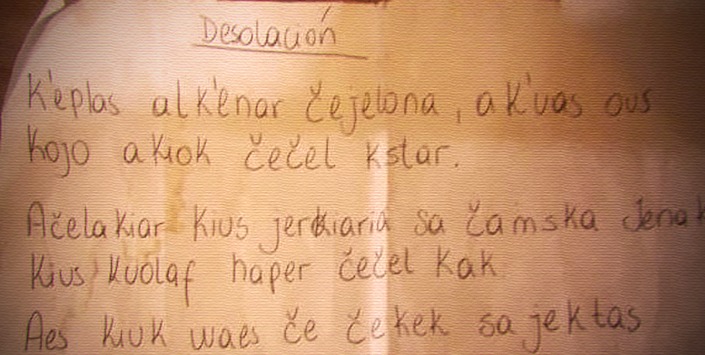 Desolación
K'eplas alk'enar čejelona, a k'uas ous
kojo akiok čečel kstar.
Ačelakiar kius sa čamska Jenak
Kius kuolaf haper čečel kak
Aes kiuk waes če čekek sa jektas